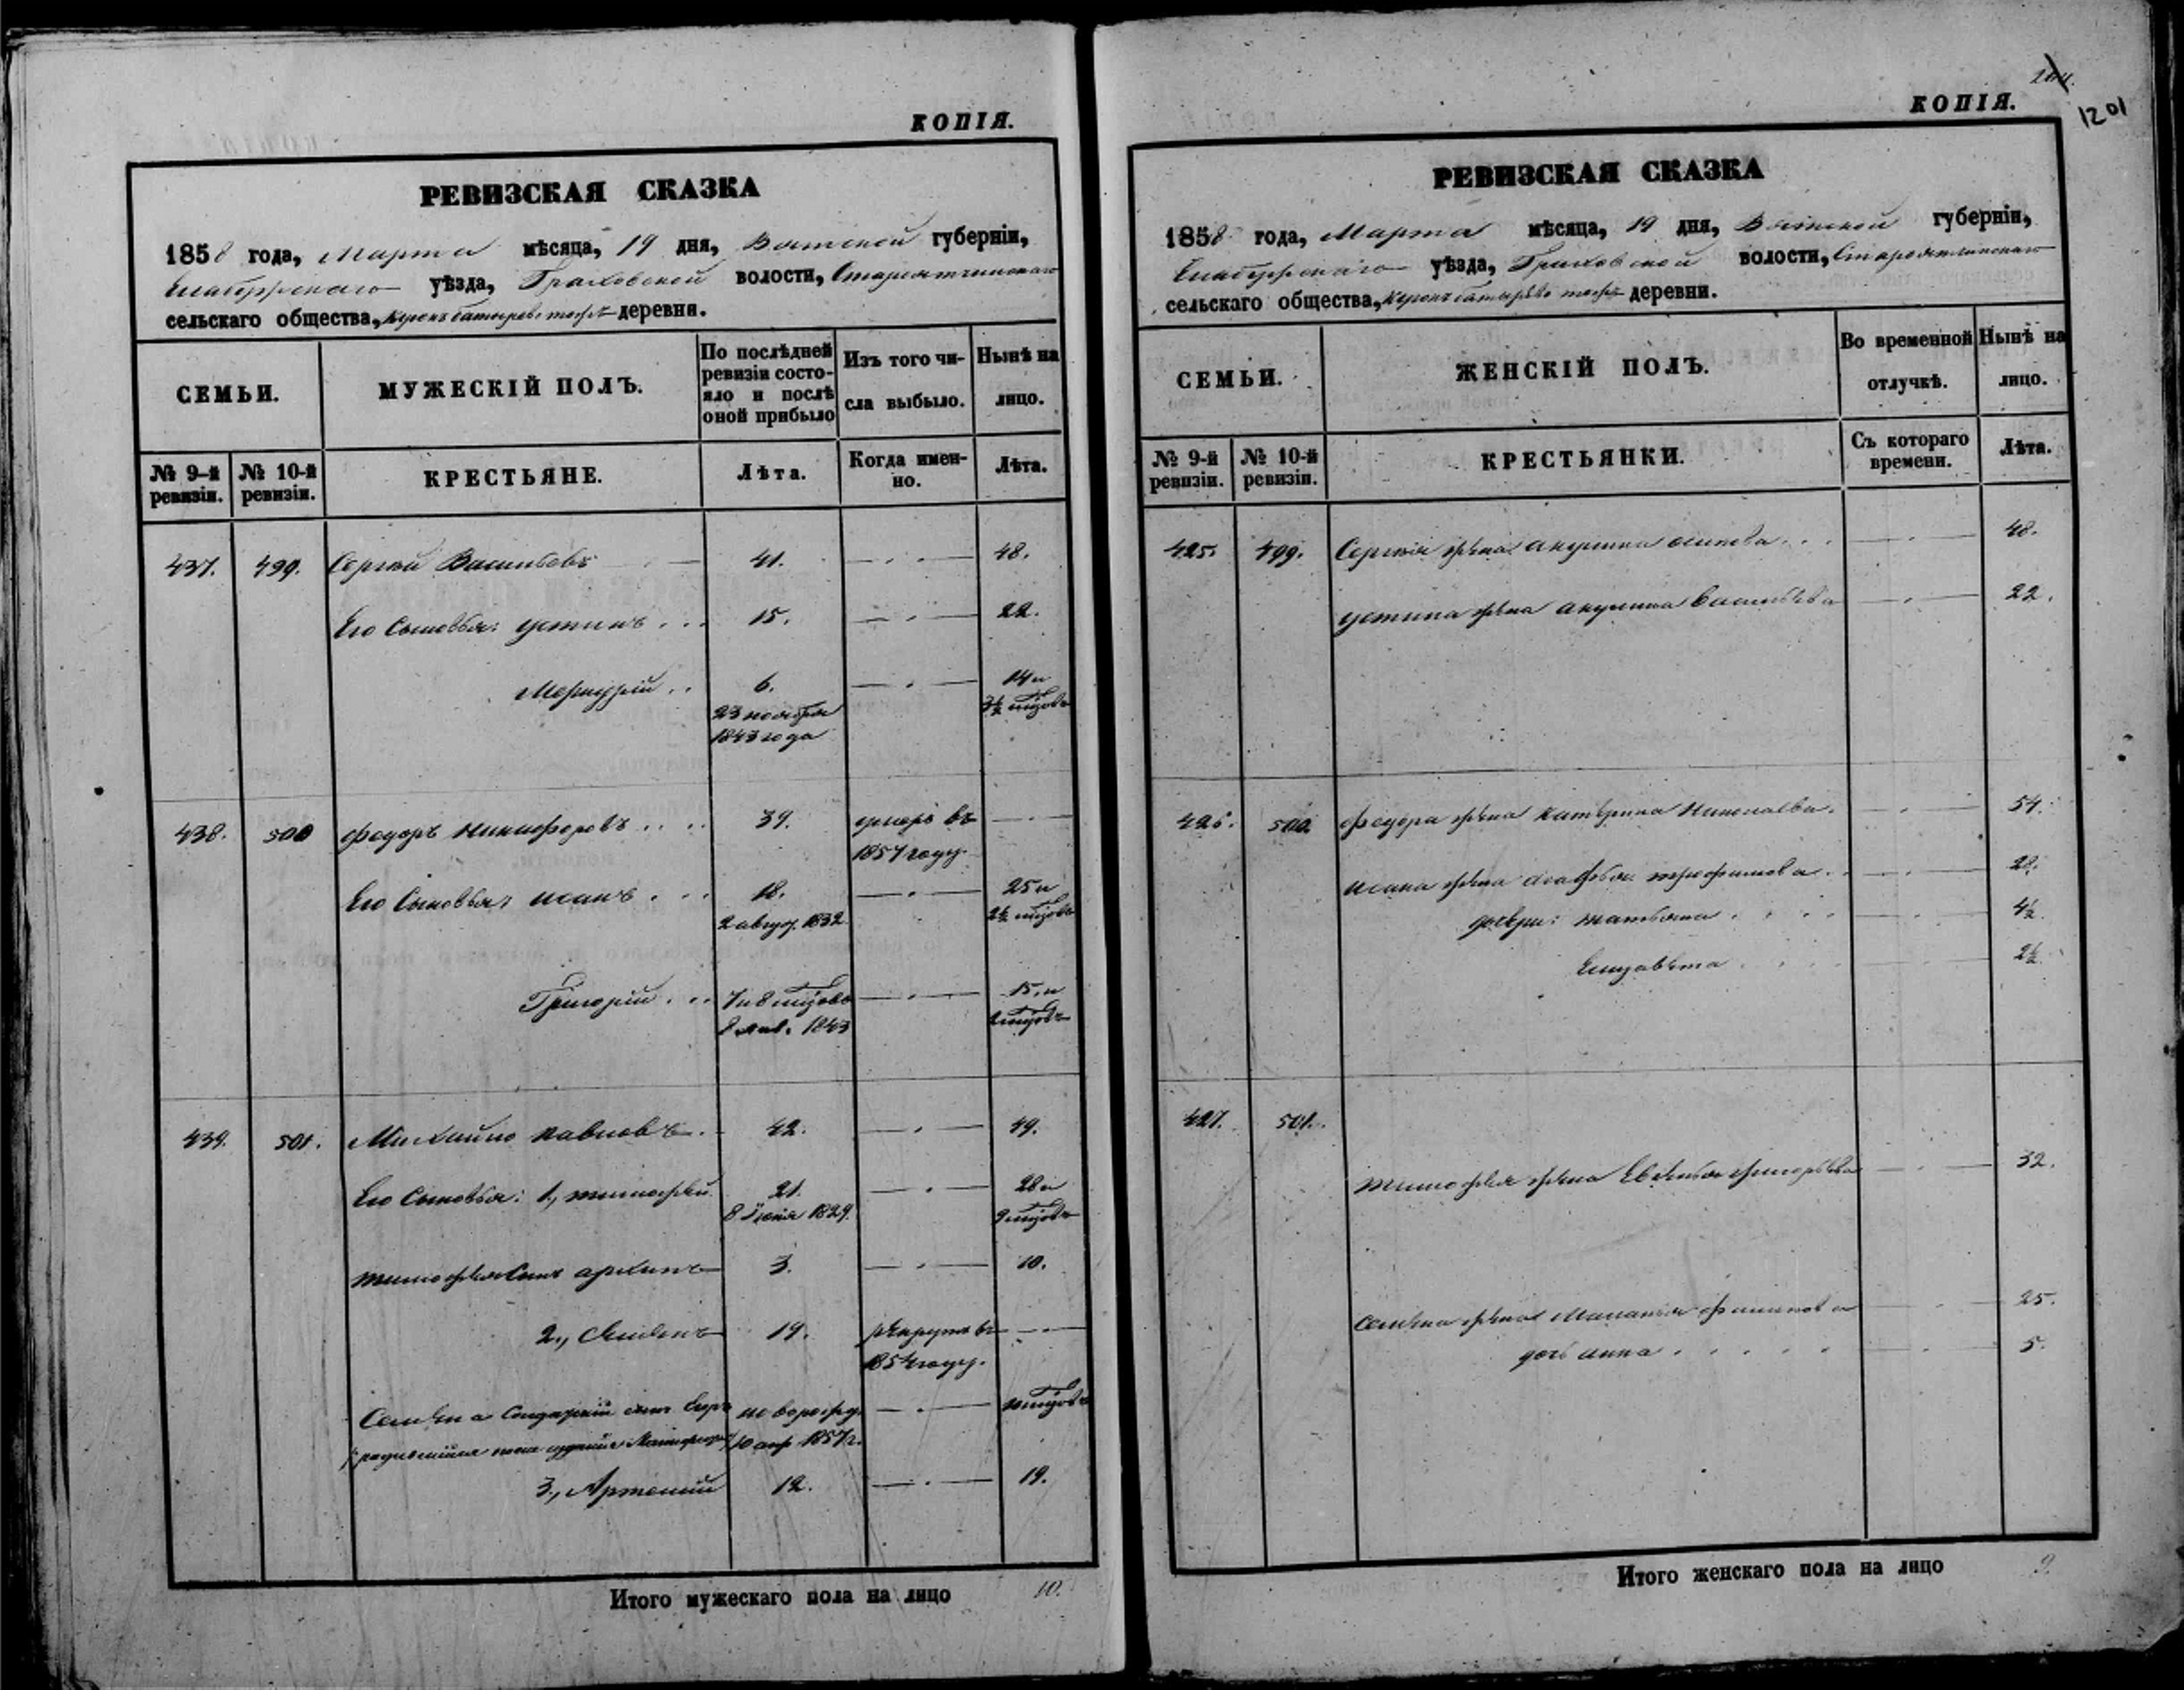 КОПІЯ.
РЕВИЗСКАЯ СКАЗКА
1858 года, Марта мѣсяца, 19 дня, Вятской губерніи,
Елабужскаго уѣзда, Граховской волости,
сельскаго общества, деревни.
СЕМЬИ.
МУЖЕСКІЙ ПОЛЪ.
По послѣдней ревизіи состояло и послѣ оной прибыло
Изъ того числа выбыло.
Нынѣ на лицо.
№ 9-й ревизіи.
№ 10-й ревизіи.
КРЕСТЬЯНЕ.
Лѣта.
Когда именно.
Лѣта.
437. 499. Сергѣй Васильевъ 41. 48.
Его Сыновья: Устинъ 15. 22.
Меркурій 6. 14 и
23 ноября 3½ мѣсяцовъ
1843 года
438. 500 Федоръ Никифоровъ 39. умеръ въ
1857 году.
Его Сыновья: Иванъ 18. 25 и
2 август. 1832
Григорій 7 и 8 мѣсяцовъ 15. и
8 янв. 1843 2 мѣсяцовъ
439. 501. Михайло Павловъ 42. 49.
Его Сыновья: 1., Тимофей 21. 28 и
8 Іюня 1829. 9 мѣсяцовъ
Тимофея Сынъ Архипъ 3. 10.
2., Семенъ 19. рекрутъ въ
1854 году.
Семена Солдатскій сынъ новорожд.
10 апр 1857 г.
3., Артемій 12. 19.
Итого мужескаго пола на лицо 10.
КОПІЯ.
1201
РЕВИЗСКАЯ СКАЗКА
1858 года, Марта мѣсяца, 19 дня, Вятской губерніи,
Елабужскаго уѣзда, Граховской волости,
сельскаго общества, деревни.
СЕМЬИ.
ЖЕНСКІЙ ПОЛЪ.
Во временной отлучкѣ.
Нынѣ на лицо.
№ 9-й ревизіи.
№ 10-й ревизіи.
КРЕСТЬЯНКИ.
Съ котораго времени.
Лѣта.
425. 499. Сергѣя жена Акулина Осипова 48.
Устина жена Акулина Васильева 22.
500. Федора жена Катерина Николаева. 54.
Ивана жена Агафья Трофимова 28.
дочери: Татьяна 4½.
Елизавѣта 2½.
427. 501.
Тимофея жена Григорьева 32.
Семена жена Маланья Филипова 25.
дочь Анна 5.
Итого женскаго пола на лицо 9.